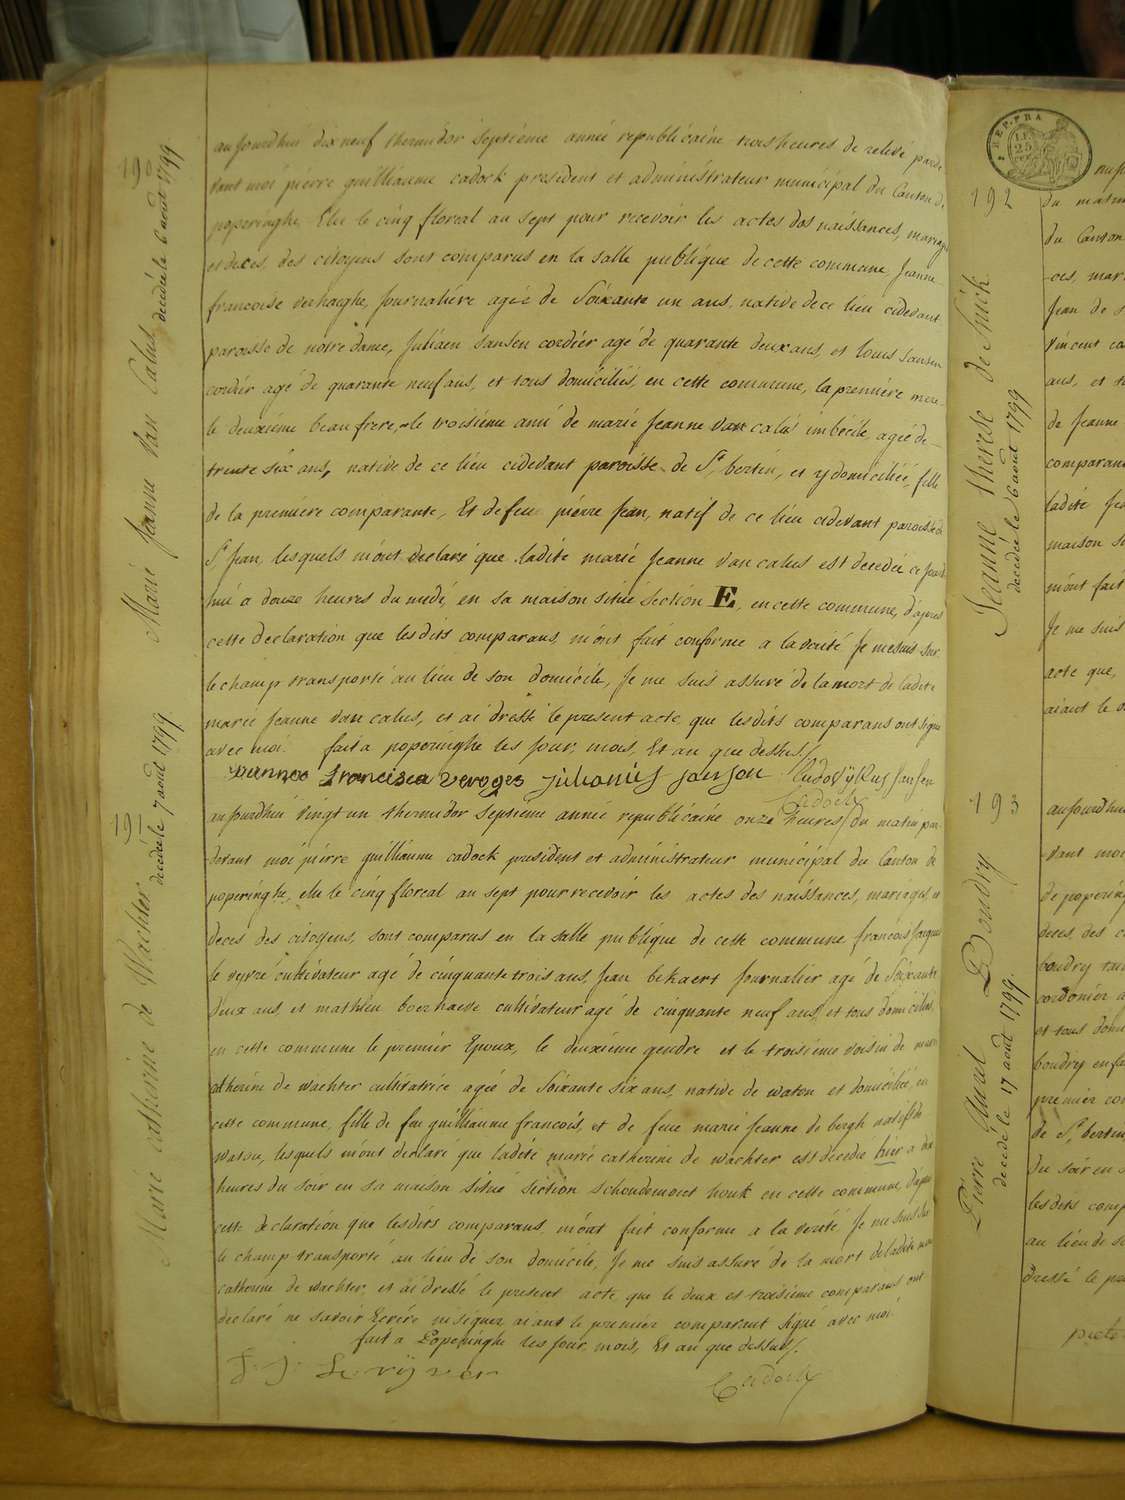 190
Marie Jeanne Van Calus
decédée le 6 août 1799
aujourdhui dix neuf thermidor septiéme année republicaine trois heures de relevé parde
vant moi pierre guilliaume cadock president et administrateur municipal du Canton de
poperinghe, Elu le cinq floreal an sept pour recevoir les actes des naissances, mariages
et deces, des citoyens sont comparus en la salle publique de cette commune Jeanne
francoise verhaeghe, Journaliére agée de Soixante un ans, native de ce lieu cidevant
paroisse de notre dame, Juliaen Sansen cordiér agé de quarante deux ans, et louis Sansen
cordiér agé de quarante neuf ans, et tous domiciliés, en cette commune, la premiére mere
le deuxiéme beau frere, le troisiéme ami de marie Jeanne Van calus imbécile agée de
trente six ans, native de ce lieu cidevant paroisse de St. bertin, et y domiciliée, fille
de la premiére comparante, Et de feu piérre Jean, natif de ce lieu cidevant paroisse de
St. Jean, lesquels m'ont declaré que ladite marie Jeanne Van calus est decedée ce jourd
hui a douze heures du midi, en sa maison située Section E, en cette commune, d'aprés
cette declaration que lesdits comparans, m'ont fait conforme a la verité Je me suis sur
le champ transporté au lieu de son domicile, Je me suis assuré de la mort de ladite
marie Jeanne Van calus, et ai dressé le present acte, que lesdits comparans ont signé
avec moi. fait a poperinghe les Jour, mois, Et an que dessus./
francisca Julianus sansen Ludovijkus Sansen
Cadock
191
Marie catherine de Wachter
decédée le 7 août 1799
aujourdhui vingt un thermidor septiéme année republicaine onze heures du matin par
devant moi piérre guilliaume cadock president et administrateur municipal du Canton de
poperinghe, elu le cinq floreal an sept pour recevoir les actes des naissances, mariages, et
deces des citoyens, sont comparus en la salle publique de cette commune francois Jacques
le vyvre cultivateur agé de cinquante trois ans, Jean bekaert Journalier agé de Soixante
deux ans, et mathieu boerhaeve cultivateur agé de cinquante neuf ans, et tous domiciliés,
en cette commune le premiér Epoux, le deuxiéme gendre et le troisiéme voisin de marie
catherine de wachter cultivatrice agée de Soixante six ans, native de watou et domiciliée, en
cette commune, fille de feu guilliaume francois, et de feue marie Jeanne de bergh natifs de
watou, lesquels m'ont declaré que ladite marie catherine de wachter est decedée hier a dix
heures du soir en sa maison située section schoudemont houk en cette commune, d'aprés
cette declaration que lesdits comparans, m'ont fait conforme a la verité Je me suis sur
le champ transporté au lieu de son domicile, Je me suis assuré de la mort de ladite marie
catherine de wachter, et ai dressé le present acte que le deux et troisiéme comparans ont
declaré ne savoir Ecrire ni signer aiant le premier comparant signé avec moi
fait a Poperinghe les Jour, mois, Et an que dessus/.
Cadock
REP. FRA
192
Jeanne therese de Snick
decédée le 6 août 1799
du matin
du Canton
-ces, mar
Jean de
vincent ca
ans, et
de Jeanne
comparant
ladite Jea
maison si
m'ont fait
Je me suis
acte que,
aiant le
193
Piérre David Boudry
decédé le 17 août 1799
aujourdhui
-vant moi
de popering
deces, des c
boudry
cordonier a
et tous domi
boudry enfa
premier com
de St. bertin
du soir en s
lesdits comp
au lieu de s
dressé le p
pieter